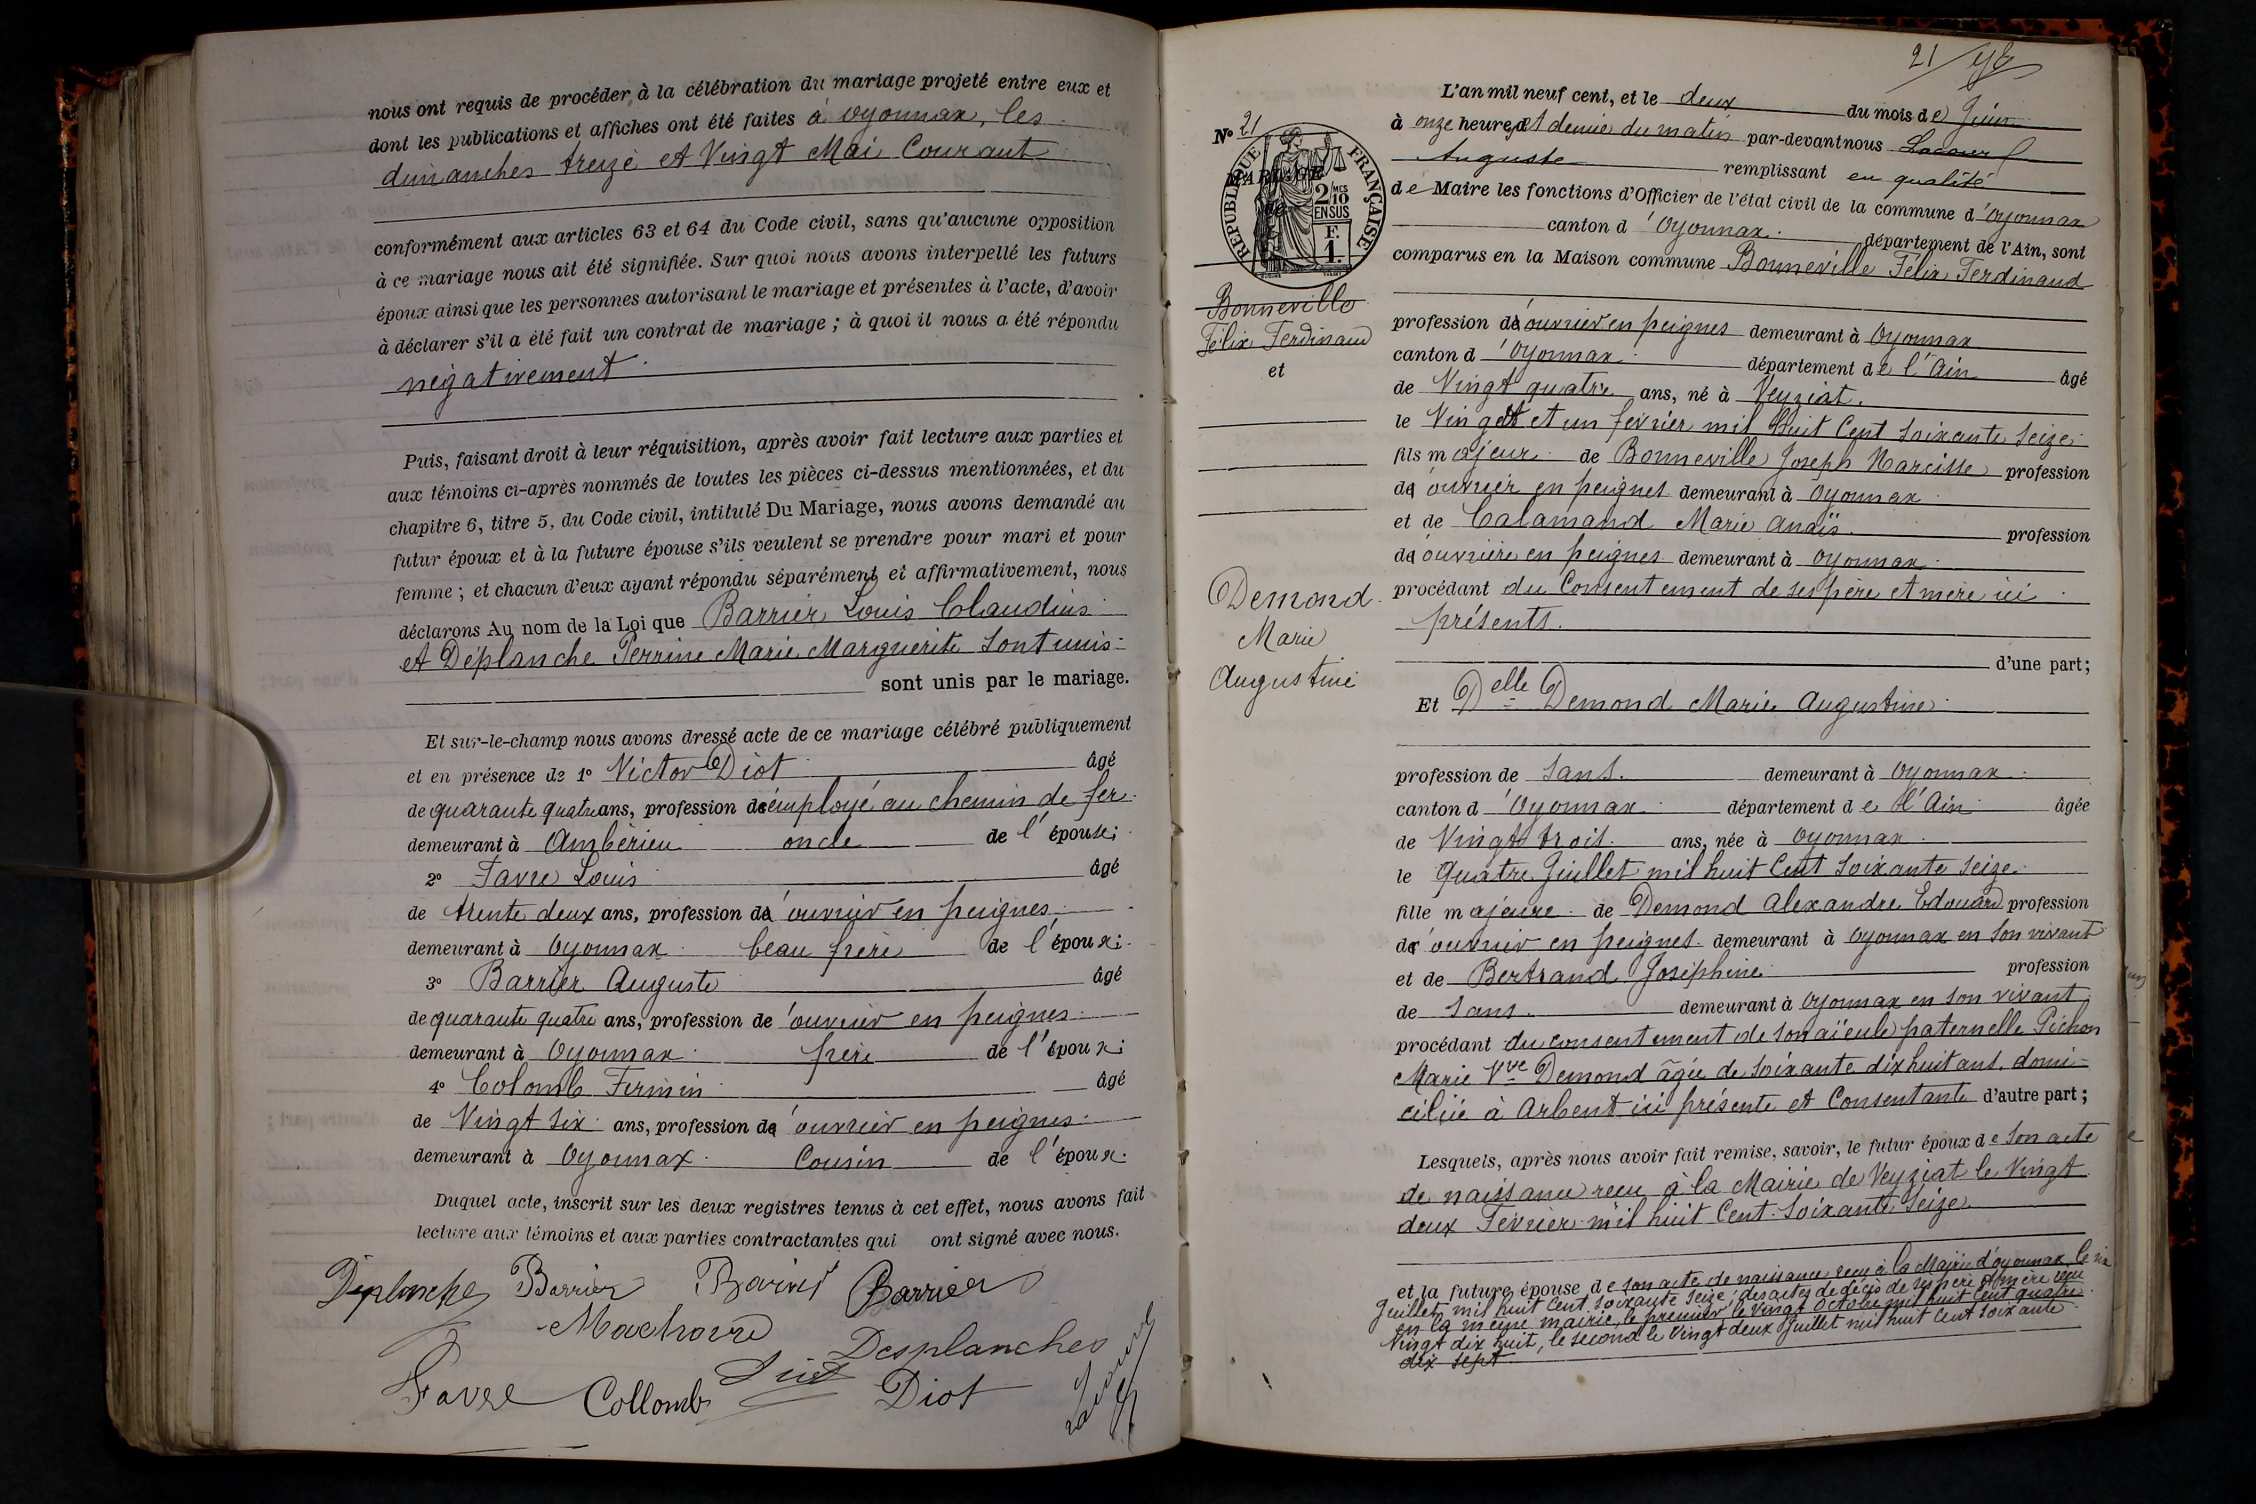 nous ont requis de procéder, à la célébration du mariage projeté entre eux et
dont les publications et affiches ont été faites à Oyonnax, les
dimanches treize et Vingt Mai Courant
conformément aux articles 63 et 64 du Code civil, sans qu'aucune opposition
à ce mariage nous ait été signifiée. Sur quoi nous avons interpellé les futurs
époux ainsi que les personnes autorisant le mariage et présentes à l'acte, d'avoir
à déclarer s'il a été fait un contrat de mariage ; à quoi il nous a été répondu
négativement
Puis, faisant droit à leur réquisition, après avoir fait lecture aux parties et
aux témoins ci-après nommés de toutes les pièces ci-dessus mentionnées, et du
chapitre 6, titre 5, du Code civil, intitulé Du Mariage, nous avons demandé au
futur époux et à la future épouse s'ils veulent se prendre pour mari et pour
femme ; et chacun d'eux ayant répondu séparément et affirmativement, nous
déclarons Au nom de la Loi que Barrier Louis Claudius
et Déplanche Perrine Marie Marguerite sont unis
sont unis par le mariage.
Et sur-le-champ nous avons dressé acte de ce mariage célébré publiquement
et en présence de 1° Victor Diot âgé
de quarante quatre ans, profession de employé au chemin de fer
demeurant à Ambérieu oncle de l'épouse;
2° Favre Louis âgé
de trente deux ans, profession d'ouvrier en peignes,
demeurant à Oyonnax beau frère de l'époux;
3° Barrier Auguste âgé
de quarante quatre ans, profession de ouvrier en peignes
demeurant à Oyonnax frère de l'époux;
4° Colomb Firmin âgé
de Vingt six ans, profession d'ouvrier en peignes
demeurant à Oyonnax Cousin de l'époux.
Duquel acte, inscrit sur les deux registres tenus à cet effet, nous avons fait
lecture aux témoins et aux parties contractantes qui ont signé avec nous.
Barrier Barrier
Desplanches
Favre Collomb Diot
21
N° 21
MARIAGE
de
RÉPUBLIQUE FRANÇAISE
2/10 MES
EN SUS
F.
1.
Bonneville
Félix Ferdinand
et
Demond
Marie
Augustine
L'an mil neuf cent, et le deux du mois de Juin
à onze heures et demie du matin par-devant nous Lacour
Auguste remplissant en qualité
de Maire les fonctions d'Officier de l'état civil de la commune d'Oyonnax
canton d'Oyonnax département de l'Ain, sont
comparus en la Maison commune Bonneville Félix Ferdinand
profession d'ouvrier en peignes demeurant à Oyonnax
canton d'Oyonnax département de l'Ain âgé
de Vingt quatre ans, né à Veyziat,
le Vingt et un février mil huit Cent soixante seize
fils majeur de Bonneville Joseph Narcisse profession
d'ouvrier en peignes demeurant à Oyonnax
et de Calamand Marie Anaïs profession
d'ouvrière en peignes demeurant à Oyonnax
procédant du Consentement de ses père et mère ici
présents.
d'une part;
Et Delle Demond Marie Augustine
profession de sans. demeurant à Oyonnax
canton d'Oyonnax département de l'Ain âgée
de Vingt trois ans, née à Oyonnax
le Quatre Juillet mil huit Cent soixante seize
fille majeure de Demond Alexandre Edouard profession
d'ouvrier en peignes demeurant à Oyonnax en son vivant
et de Bertrand Joséphine profession
de sans demeurant à Oyonnax en son vivant
procédant du consentement de son aïeule paternelle Pichon
Marie Vve Demond âgée de soixante dix huit ans, domi-
ciliée à Arbent ici présente et Consentante d'autre part;
Lesquels, après nous avoir fait remise, savoir, le futur époux de son acte
de naissance reçu à la Mairie de Veyziat le Vingt
deux Février mil huit Cent soixante seize
et la future épouse de son acte de naissance reçu à la Mairie d'Oyonnax le six
Juillet mil huit Cent soixante seize; des actes de décès de ses père et mère reçu
en la même mairie, le premier le Vingt Octobre mil huit Cent quatre
Vingt dix huit, le second le Vingt deux Juillet mil huit Cent soixante
dix sept